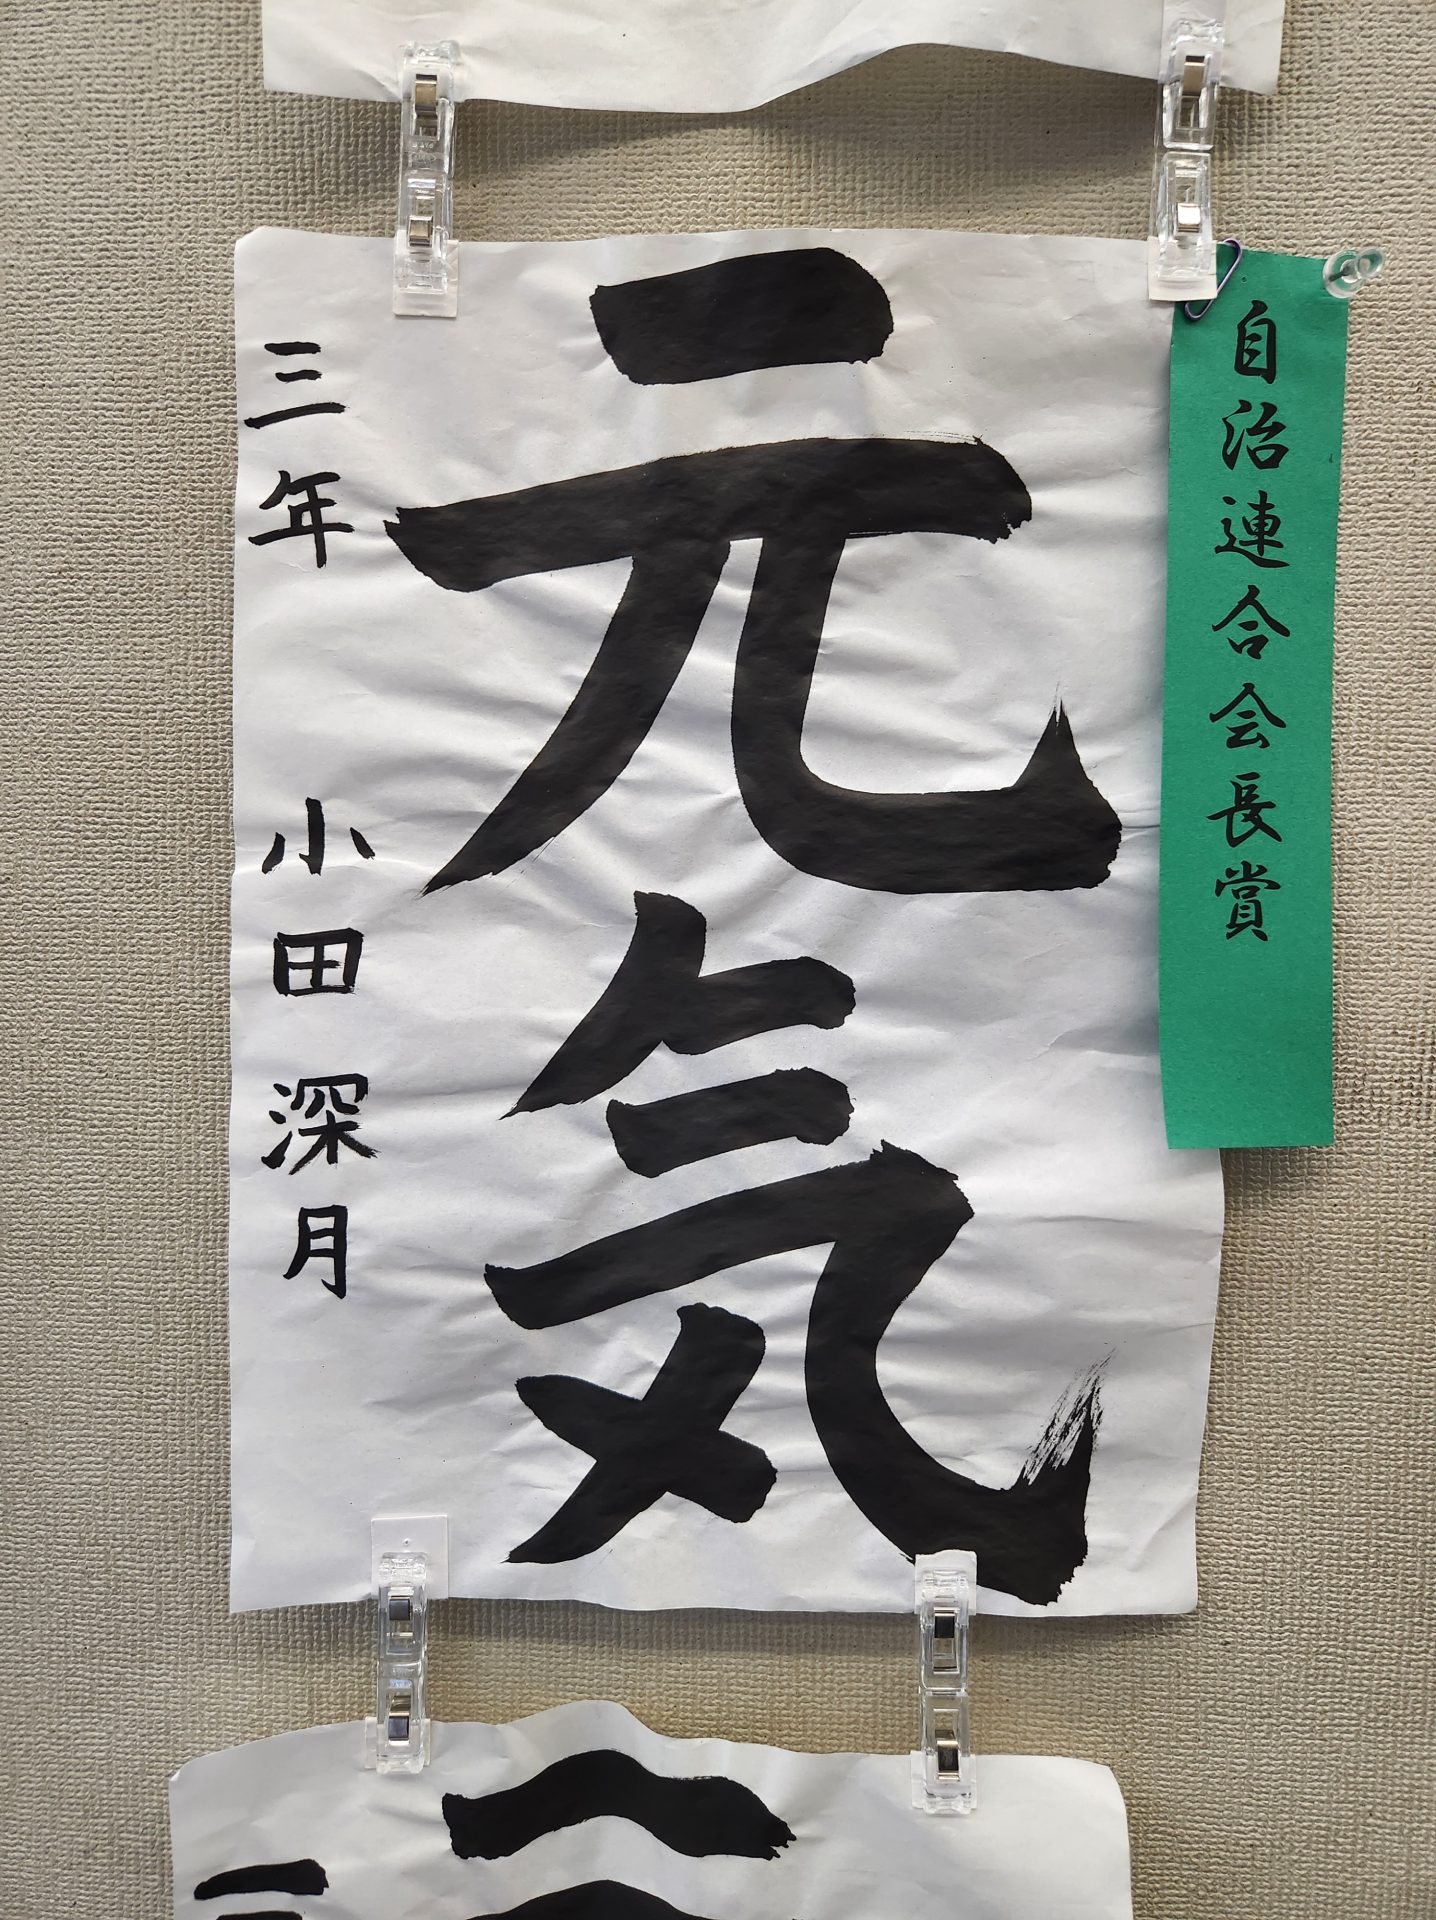 自治連合会長賞
元気
三年 小田深月